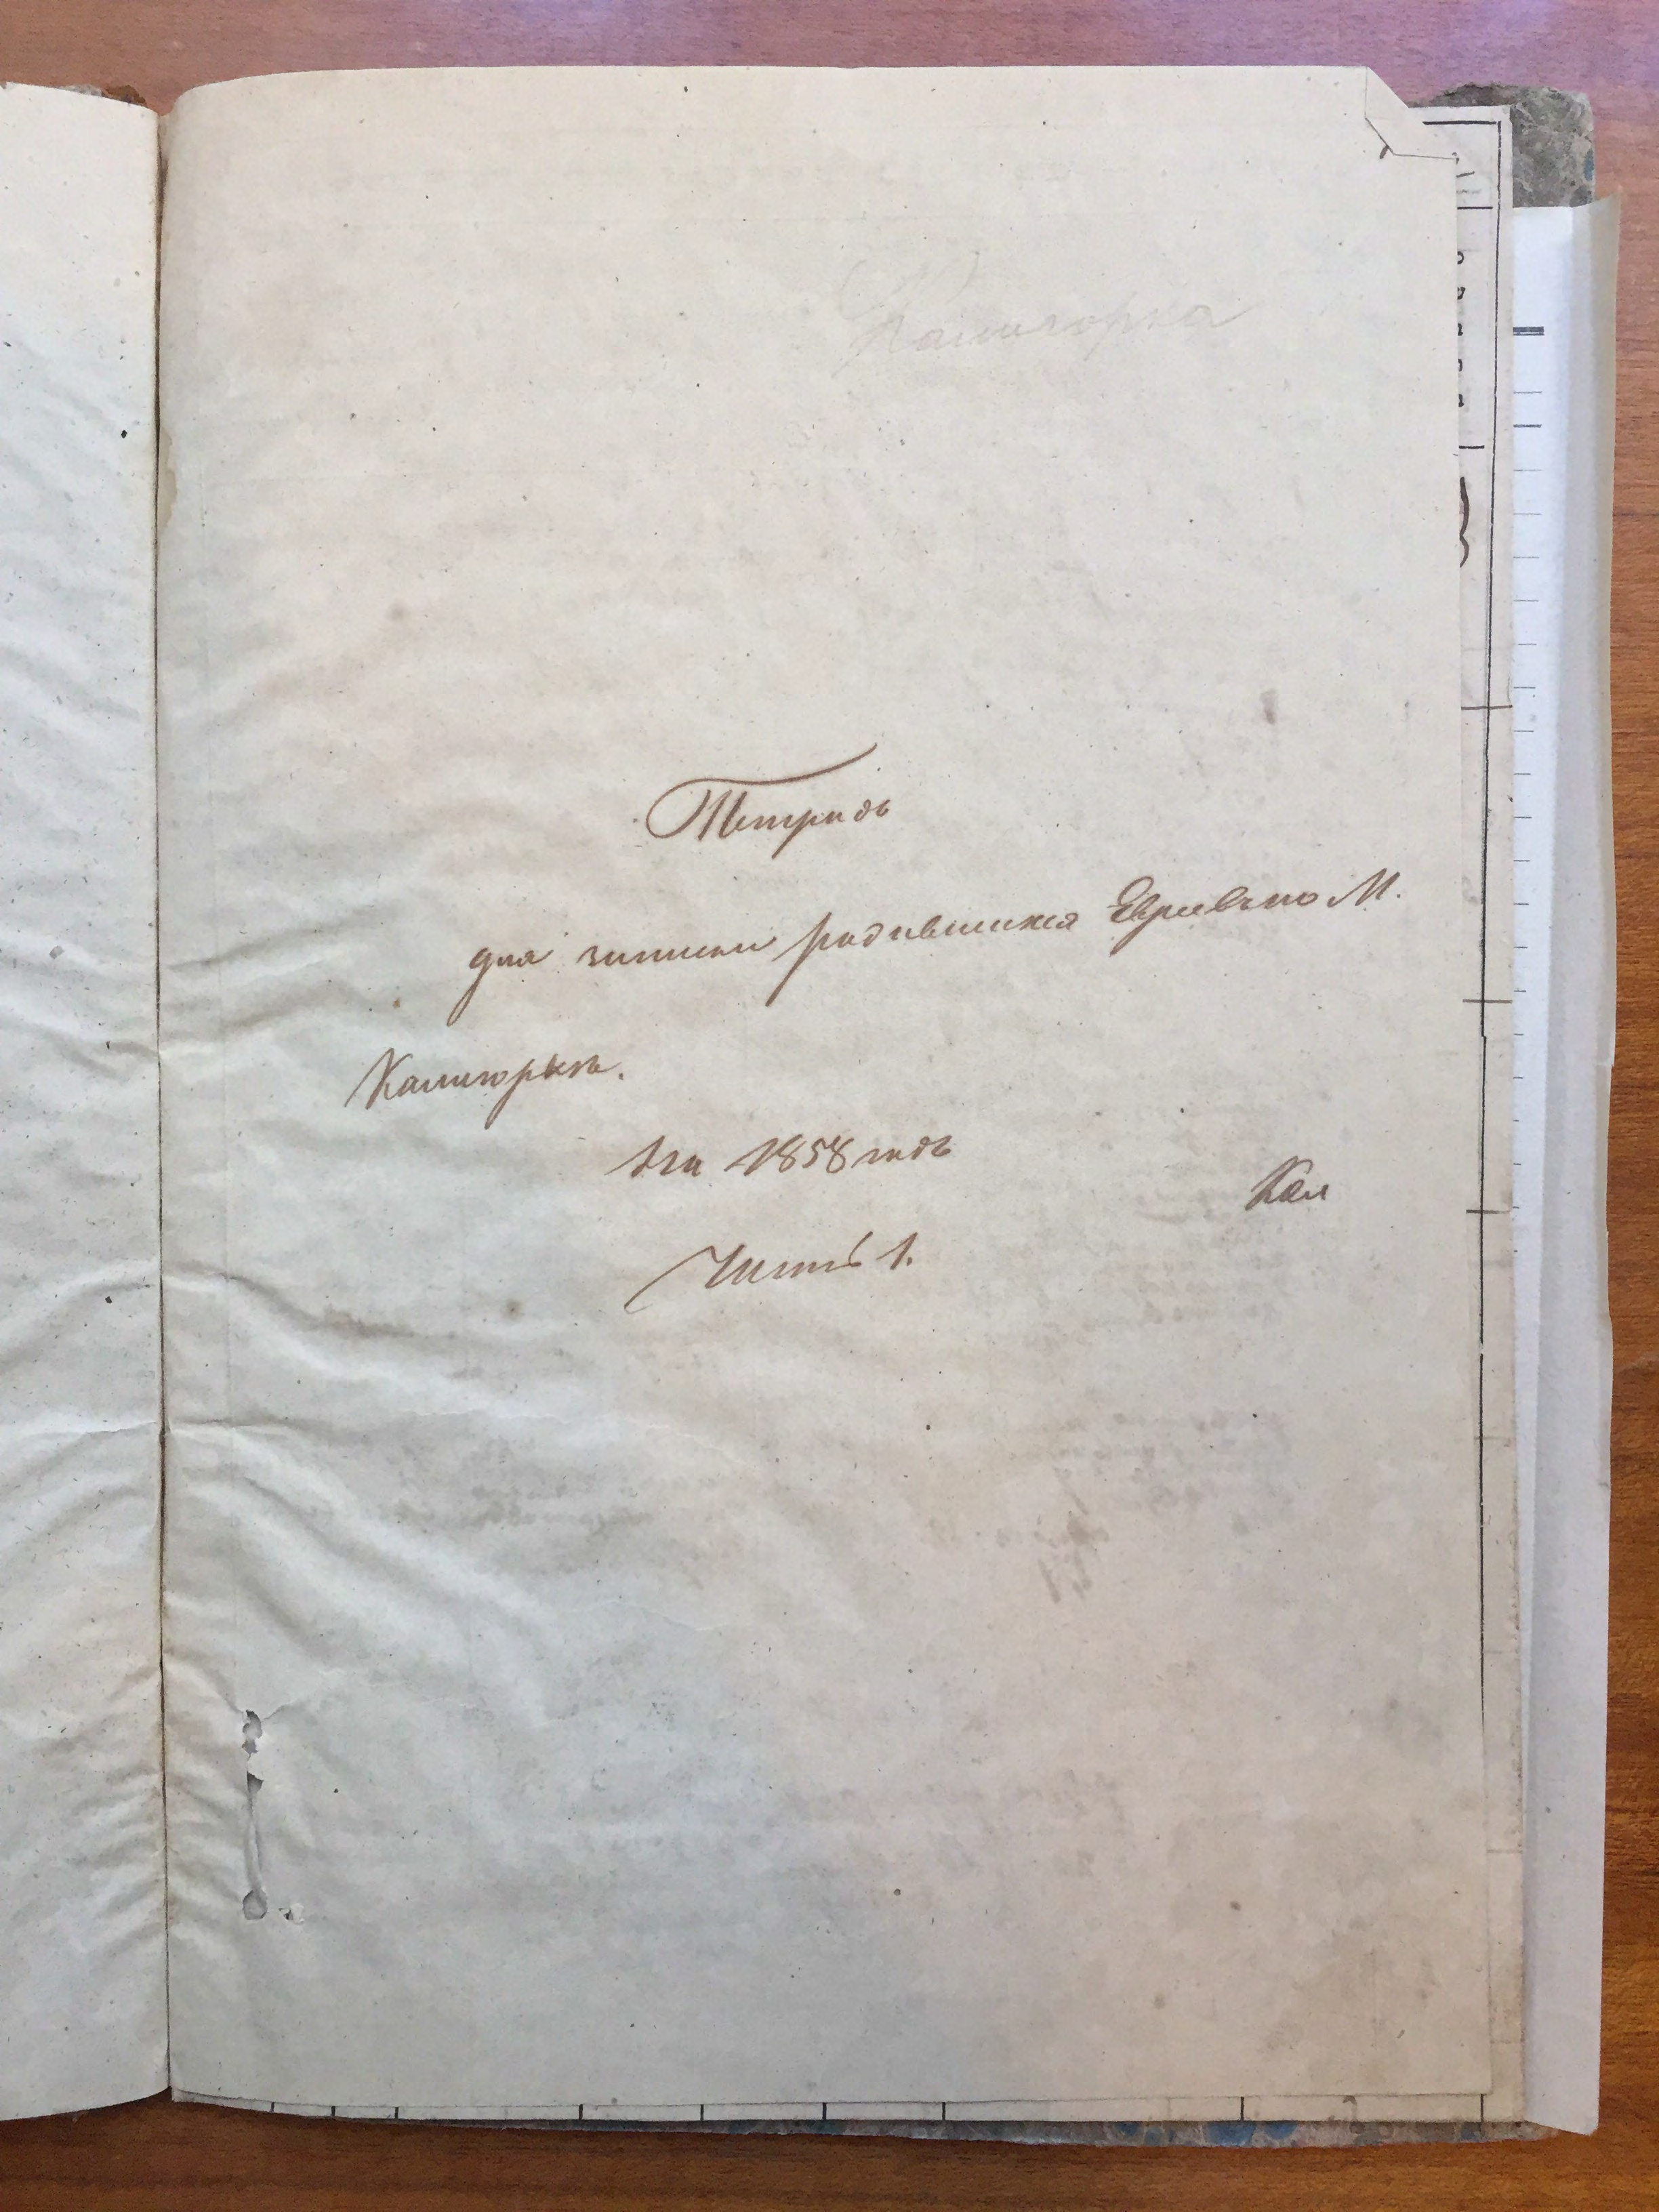 Калигорка
Тетрадь
для записки родившихся Евреевъ по М.
Калигоркѣ.
на 1858 годъ
Кал
Часть 1.